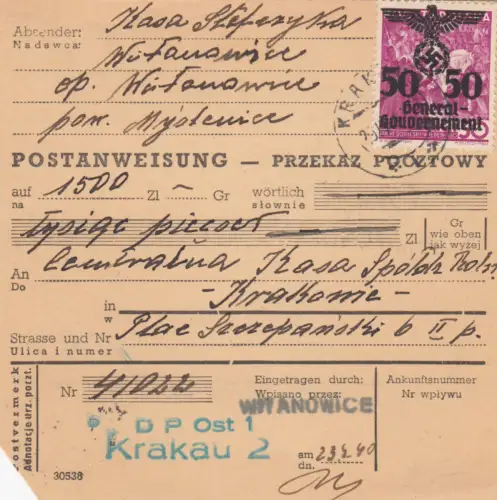 Absender:
Nadawca:
Kasa Stefczyka
Witanowice
op. Witanowice
pow. Myślenice
50 50
General-
Gouvernement
50
KRAK
POSTANWEISUNG — PRZEKAZ POCZTOWY
auf 1500 Zl — Gr wörtlich
na słownie
tysiąc pięćset Zl
Gr
wie oben
jak wyżej
An Centralna Kasa Spółdz. Roln.
Do
in - Krakowie -
w
Strasse und Nr Plac Szczepański 6 II p.
Ulica i numer
Postvermerk
Adnotacje urz. poczt.
Nr 41022
Eingetragen durch:
Wpisano przez:
WITANOWICE
Ankunftsnummer
Nr wpływu
D P Ost 1
Krakau 2
am 23.4.40
dn.
30538